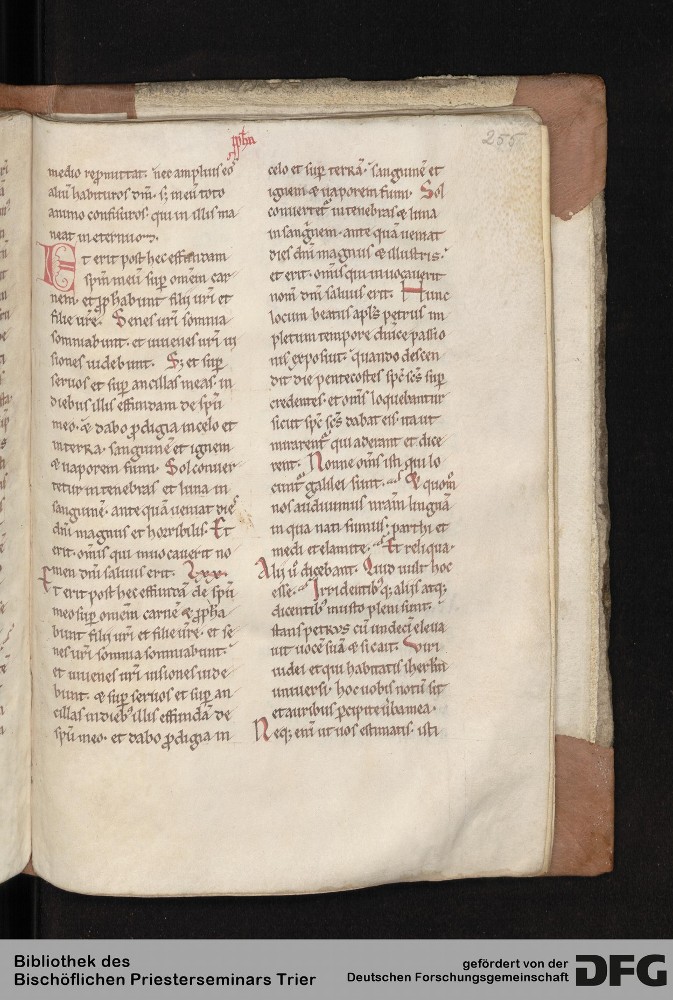 255
medio repromittat. nec amplius eos
aliū habituros dm̄. sꝫ meū toto
animo confisuros. qui in illis ma
neat in eternum.
Et erit post hec effundam
spm̄ meū sup omēm car
nem. et ꝓphabunt filij urī et
filie urē. Senes urī somnia
somniabunt. et iuuenes urī ui
siones uidebunt. Sꝫ et sup
seruos et sup ancillas meas. in
diebus illis effundam de spū
meo. & dabo ꝓdigia in celo et
in terra. sanguinē et ignem
& uaporem fumi. Sol conuer
tetur in tenebras et luna in
sanguinē. ante quā ueniat dies
dn̄i magnus et horribilis. Et
erit. omīs qui inuocauerit no
men dn̄i saluus erit. Lxx.
Et erit post hec effundā de spū
meo sup omēm carnē & ꝓpha
bunt filij urī et filie urē. et se
nes urī somnia somniabunt.
et iuuenes urī uisiones uide
bunt. & sup seruos et sup an
cillas in diebꝰ illis effundā de
spū meo. et dabo ꝓdigia in
celo et sup terrā. sanguinē et
ignem & uaporem fumi. Sol
conuertet᷑ in tenebras & luna
in sang̅nem. ante quā ueniat
dies dn̄i magnus & illustris.
et erit. omīs qui inuocauerit
nom̄ dn̄i saluus erit. Hunc
locum beatus apl̄s petrus im
pletum tempore dn̄ice passio
nis exposuit. quando descen
dit die pentecostes spc̄ scs̄ sup
credentes. et om̄s loquebantur
sicut spc̄ scs̄ dabat eis. ita ut
mirarent᷑ qui aderant et dice
rent. Nonne om̄s isti qui lo
cunt᷑ galilei sunt. & quom̊
nos audiuimus nr̄am linguā
in qua nati sumus; parthi et
medi et elamite. Et reliqua.
Alij ū dicebant. Quid uult hoc
esse. Irridentibꝰqꝫ alijs atqꝫ
dicentibꝰ musto pleni sunt.
stans petrus cū undecī eleua
uit uocē suā & sic ait. Viri
iudei et qui habitatis iherlm̄
uniuersi. hoc uobis notū sit
et auribus ꝑcipite ūba mea.
Neqꝫ enī ut uos estimatis. isti
Bibliothek des
Bischöflichen Priesterseminars Trier
gefördert von der
Deutschen Forschungsgemeinschaft
DFG